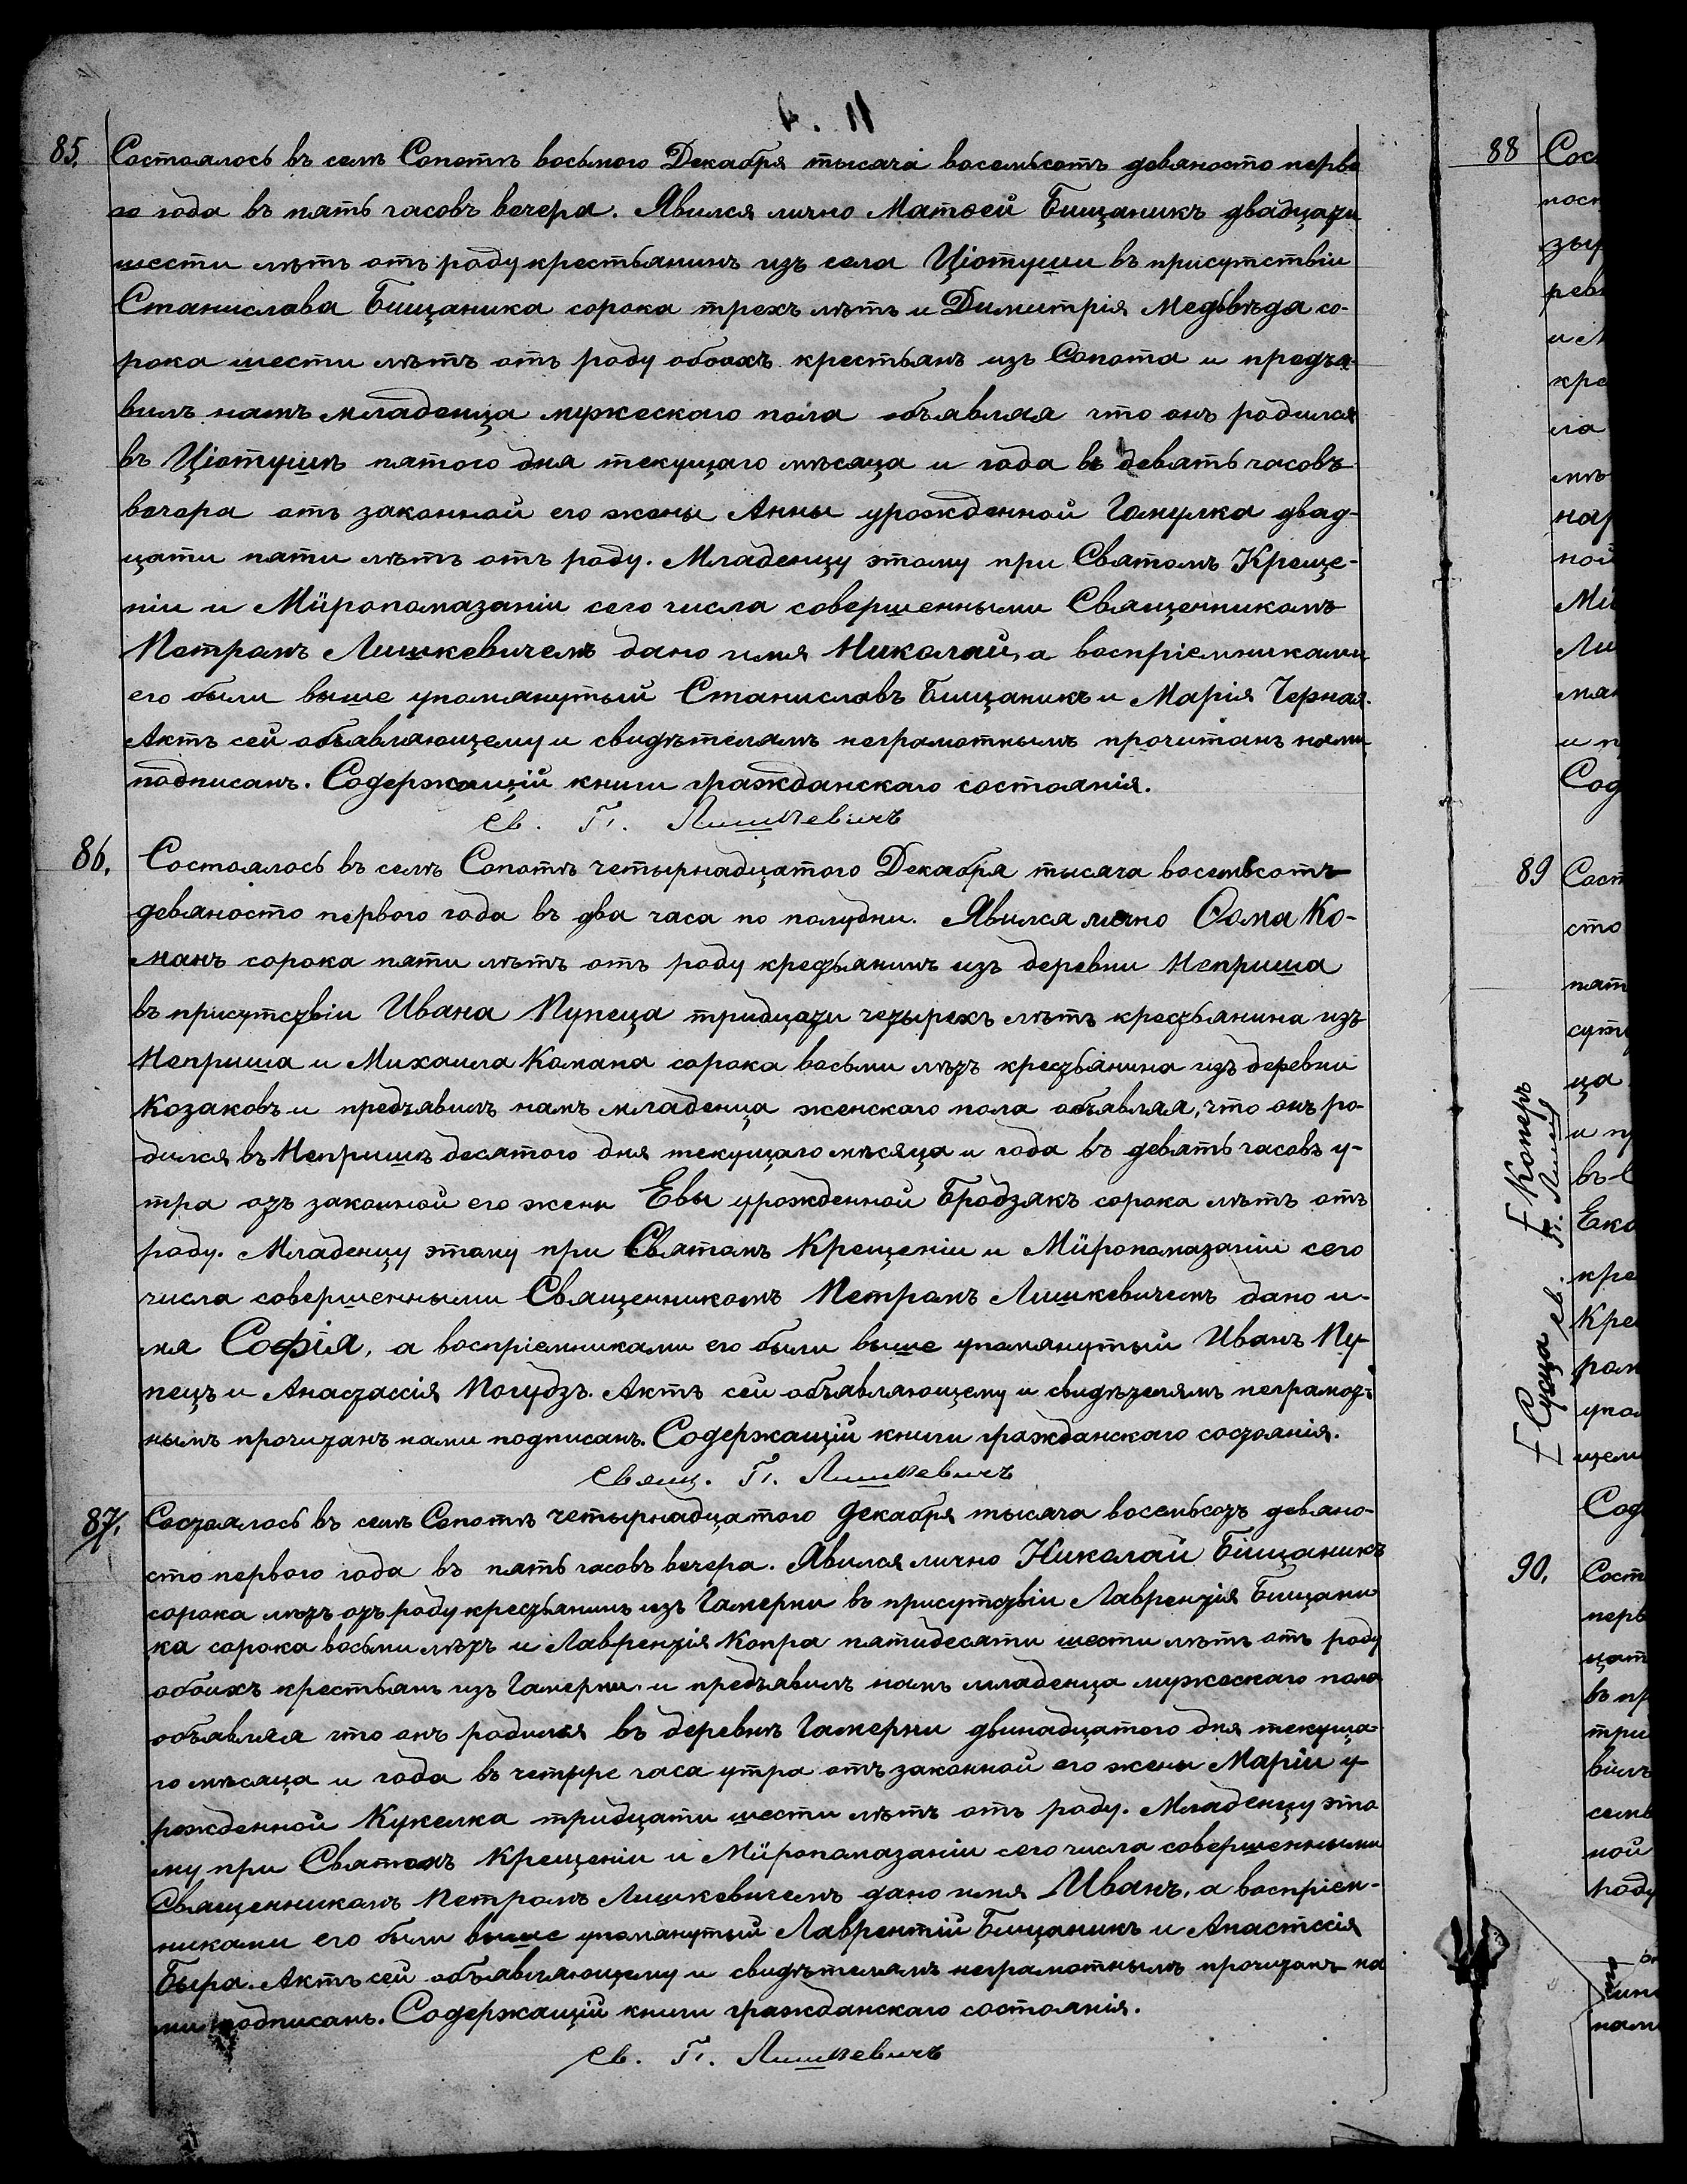 85. Состоялось въ селѣ Сопотѣ восьмого Декабря тысяча восемьсотъ девяносто перва
го года въ пять часовъ вечера. Явился лично Матѳей Бищаникъ двадцати
шести лѣтъ отъ роду крестьянинъ изъ села Ціотуши въ присутствіи
Станислава Бищаника сорока трехъ лѣтъ и Димитрія Медвѣда со-
рока шести лѣтъ отъ роду обоихъ крестьянъ изъ Сопота и предъя-
вилъ намъ младенца мужескаго пола объявляя что онъ родился
въ Ціотушѣ пятого дня текущаго мѣсяца и года въ девять часовъ
вечера отъ законной его жены Анны урожденной Гамулка двад-
цати пяти лѣтъ отъ роду. Младенцу этому при Святомъ Креще-
ніи и Мѵропомазаніи сего числа совершенными Священникомъ
Петромъ Лишкевичемъ дано имя Николай, а воспріемниками
его были выше упомянутый Станиславъ Бищаникъ и Марія Черная.
Актъ сей объявляющему и свидѣтелямъ неграмотнымъ прочитанъ нами
подписанъ. Содержащій книги гражданскаго состоянія.
Св. П. Лишкевичъ
86. Состоялось въ селѣ Сопотѣ четырнадцатого Декабря тысяча восемьсотъ
девяносто первого года въ два часа по полудни. Явился лично Ѳома Ко-
манъ сорока пяти лѣтъ отъ роду крестьянинъ изъ деревни Неприша
въ присутствіи Ивана Пупеца тридцати четырехъ лѣтъ крестьянина изъ
Неприша и Михаила Комана сорока восьми лѣтъ крестьянина изъ деревни
Козаковъ и предъявилъ намъ младенца женскаго пола объявляя, что онъ ро-
дился въ Непришѣ десятого дня текущаго мѣсяца и года въ девять часовъ у-
тра отъ законной его жены Евы урожденной Бродзякъ сорока лѣтъ отъ
роду. Младенцу этому при Святомъ Крещеніи и Мѵропомазаніи сего
числа совершенными Священникомъ Петромъ Лишкевичемъ дано и-
мя Софія, а воспріемниками его были выше упомянутый Иванъ Пу-
пецъ и Анастасія Погудзъ. Актъ сей объявляющему и свидѣтелямъ неграмот-
нымъ прочитанъ нами подписанъ. Содержащій книги гражданскаго состоянія.
Свящ. П. Лишкевичъ
87. Состоялось въ селѣ Сопотѣ четырнадцатого Декабря тысяча восемьсотъ девяно-
сто первого года въ пять часовъ вечера. Явился лично Николай Бищаникъ
сорока лѣтъ отъ роду крестьянинъ изъ Гамерни въ присутствіи Лаврентія Бищани
ка сорока восьми лѣтъ и Лаврентія Копра пятидесяти шести лѣтъ отъ роду
обоихъ крестьянъ изъ Гамерни и предъявилъ намъ младенца мужескаго пола
объявляя что онъ родился въ деревнѣ Гамерни двинадцатого дня текуща-
го мѣсяца и года въ четыре часа утра отъ законной его жены Маріи у-
рожденной Кукелка тридцати шести лѣтъ отъ роду. Младенцу это
му при Святомъ Крещеніи и Мѵропомазаніи сего числа совершенными
Священникомъ Петромъ Лишкевичемъ дано имя Иванъ, а воспріем-
никами его были выше упомянутый Лаврентій Бищаникъ и Анастсія
Быра. Актъ сей объявляющему и свидѣтелямъ неграмотнымъ прочитанъ на
ми подписанъ. Содержащій книги гражданскаго состоянія.
Св. П. Лишкевичъ
88
89
90.